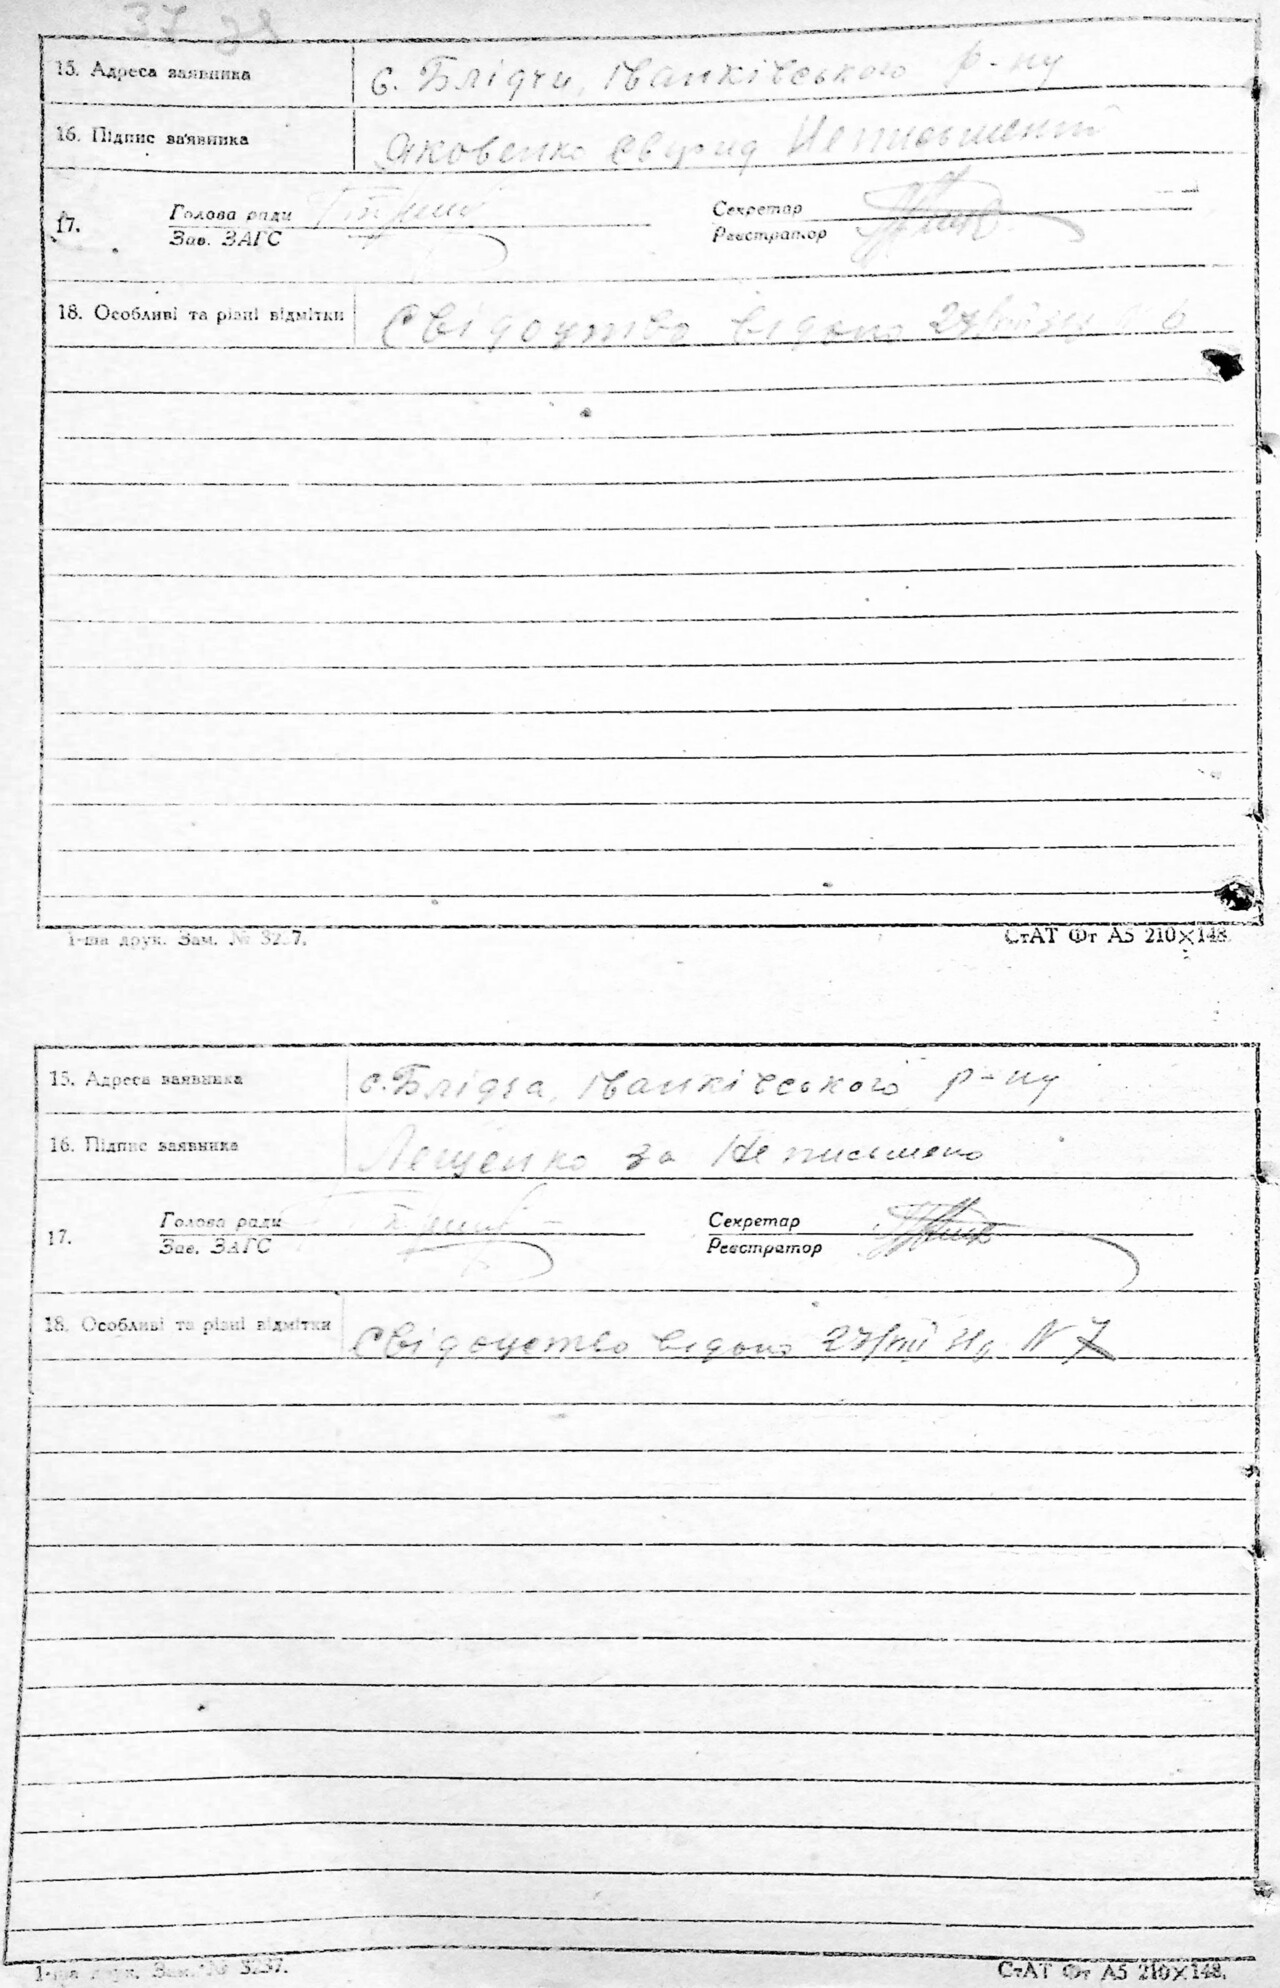 37 38
15. Адреса заявника с. Блідчи, Іванківського р-ну
16. Підпис заявника Яковенко Свирид Неписьмений
17. Голова ради Секретар
Зав. ЗАГС Реєстратор
18. Особливі та різні відмітки Свідоцтво видано № 6
1-ша друк. Зам. № 3237. СтАТ Фт А5 210×148.
15. Адреса заявника с. Блідча, Іванківського р-ну
16. Підпис заявника Лещенко за Неписьмено
17. Голова ради Секретар
Зав. ЗАГС Реєстратор
18. Особливі та різні відмітки Свідоцтво видано 27/VIII N 7
1-ша друк. Зам. № 3237. СтАТ Фт А5 210×148.